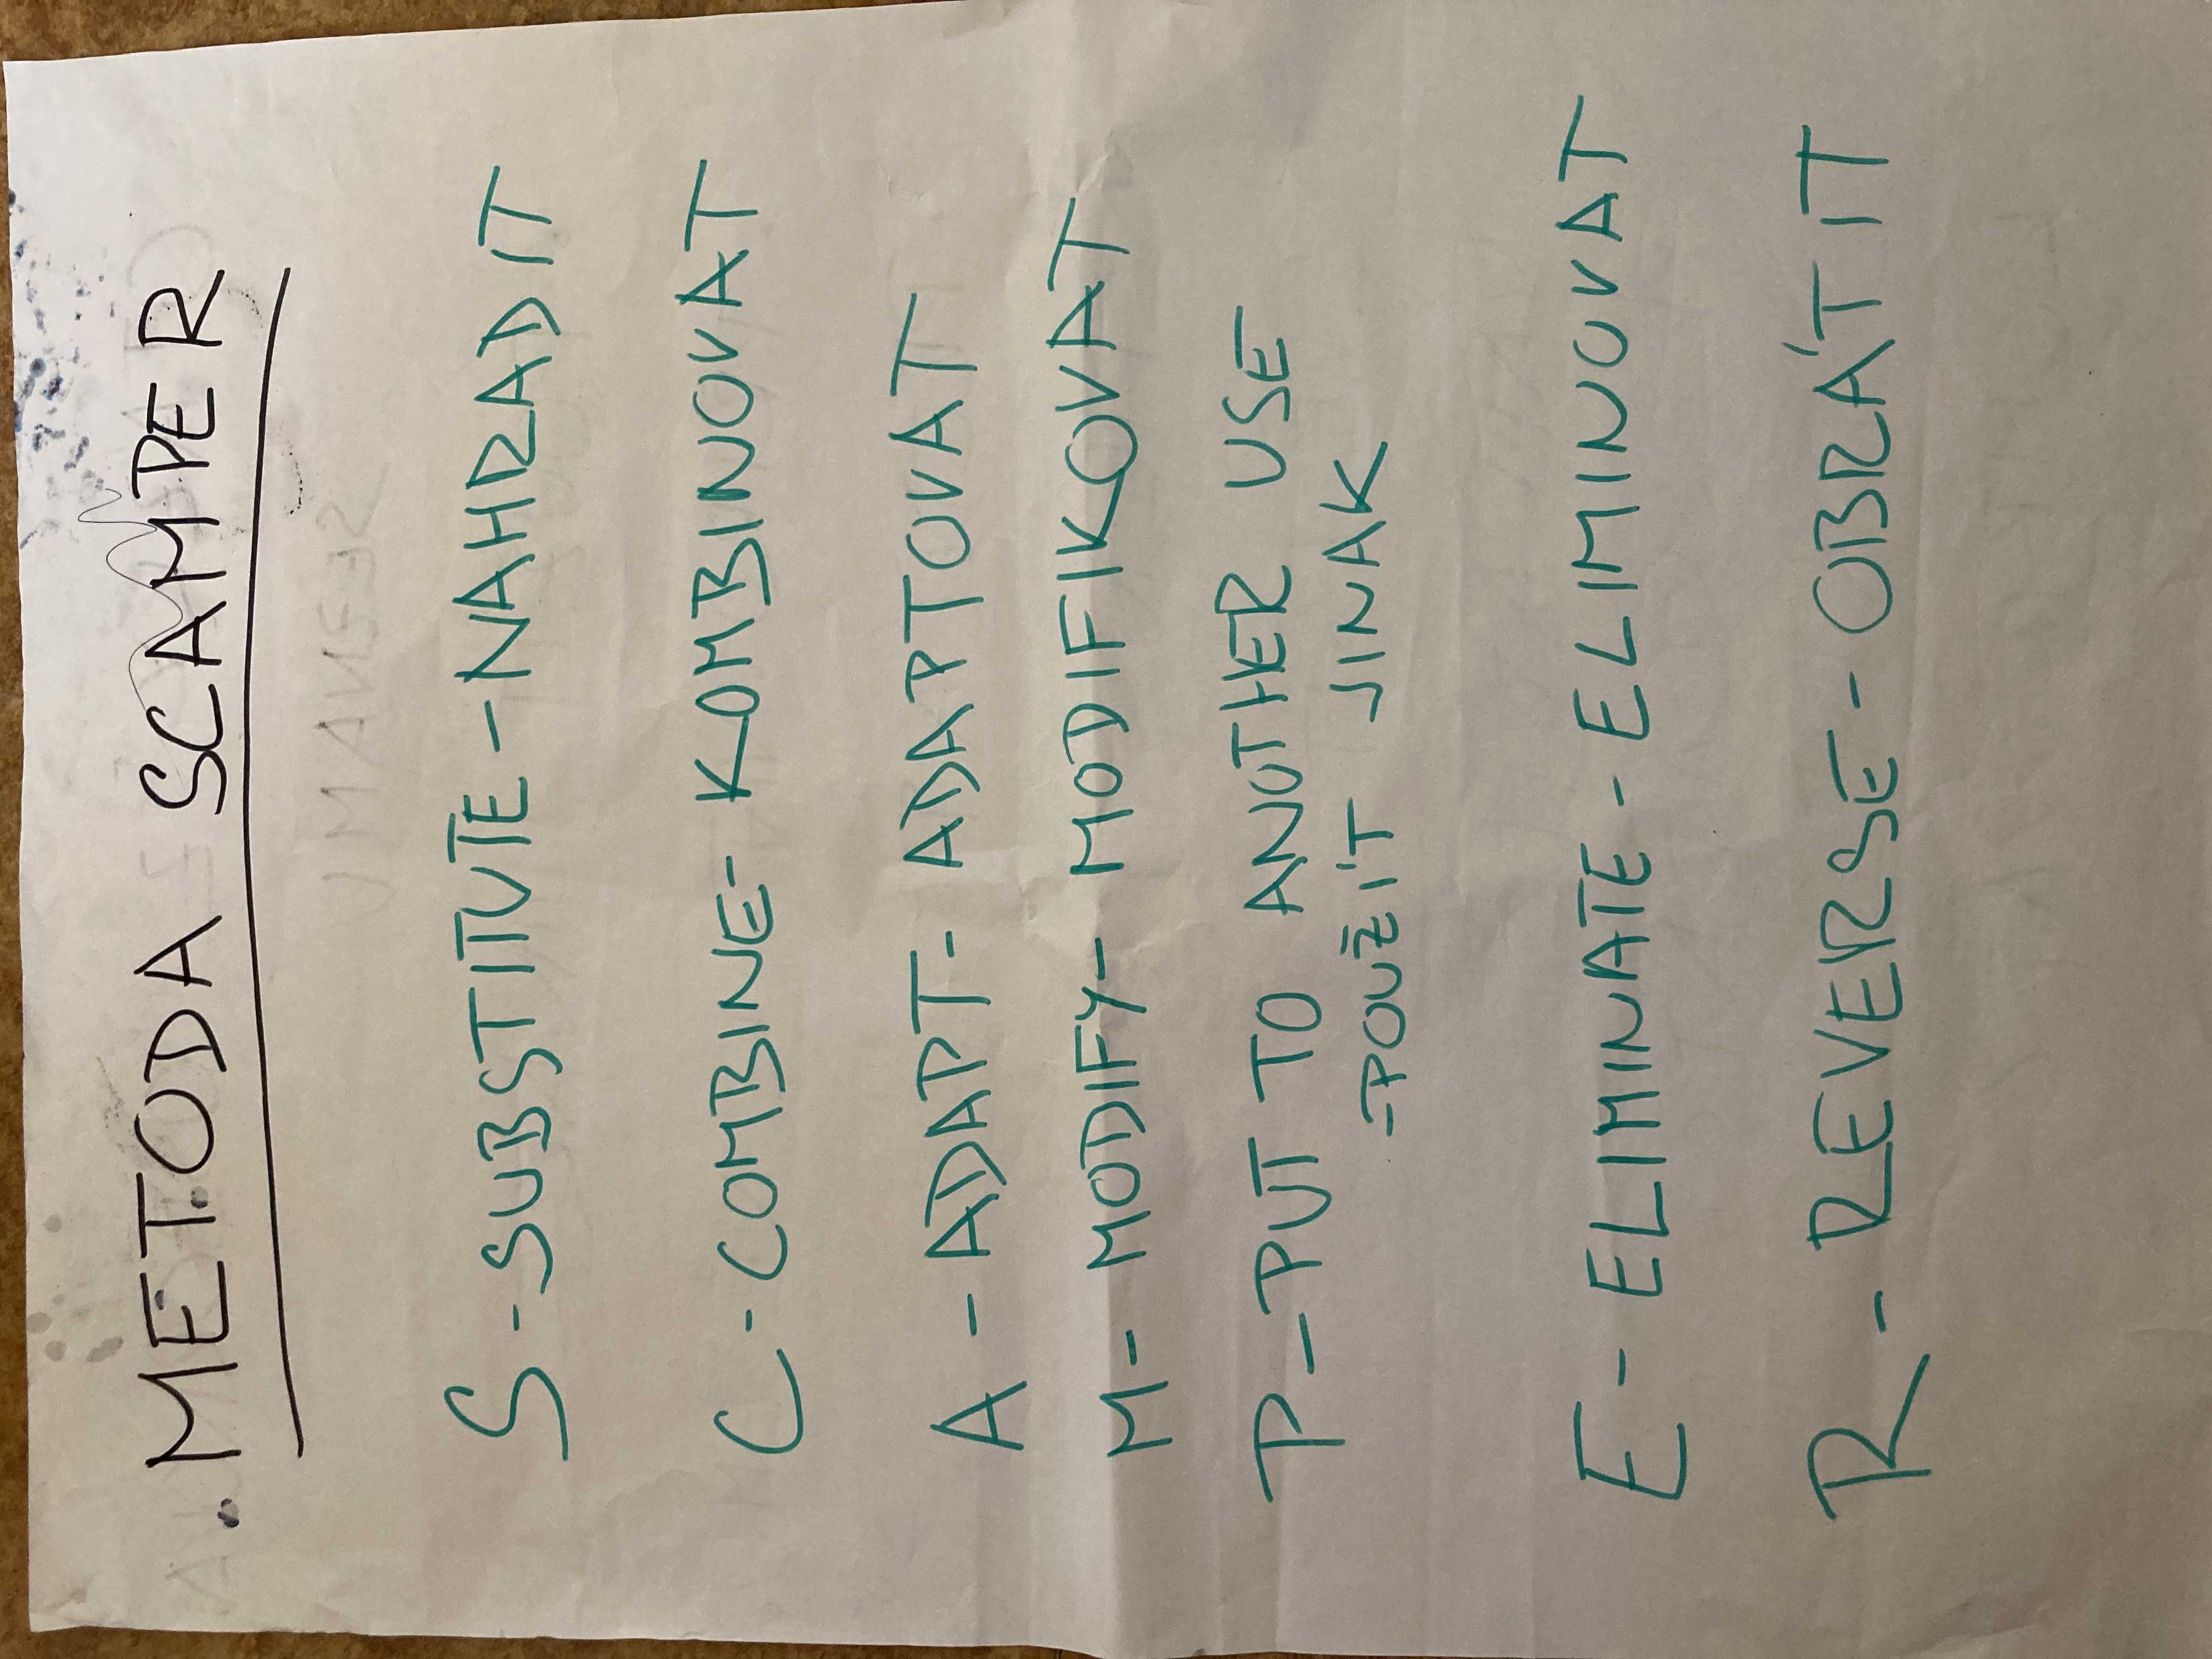 METODA SCAMPER
S - SUBSTITUTE - NAHRADIT
C - COMBINE - KOMBINOVAT
A - ADAPT - ADAPTOVAT
M - MODIFY - MODIFIKOVAT
P - PUT TO ANOTHER USE
= POUŽÍT JINAK
E - ELIMINATE - ELIMINOVAT
R - REVERSE - OBRÁTIT